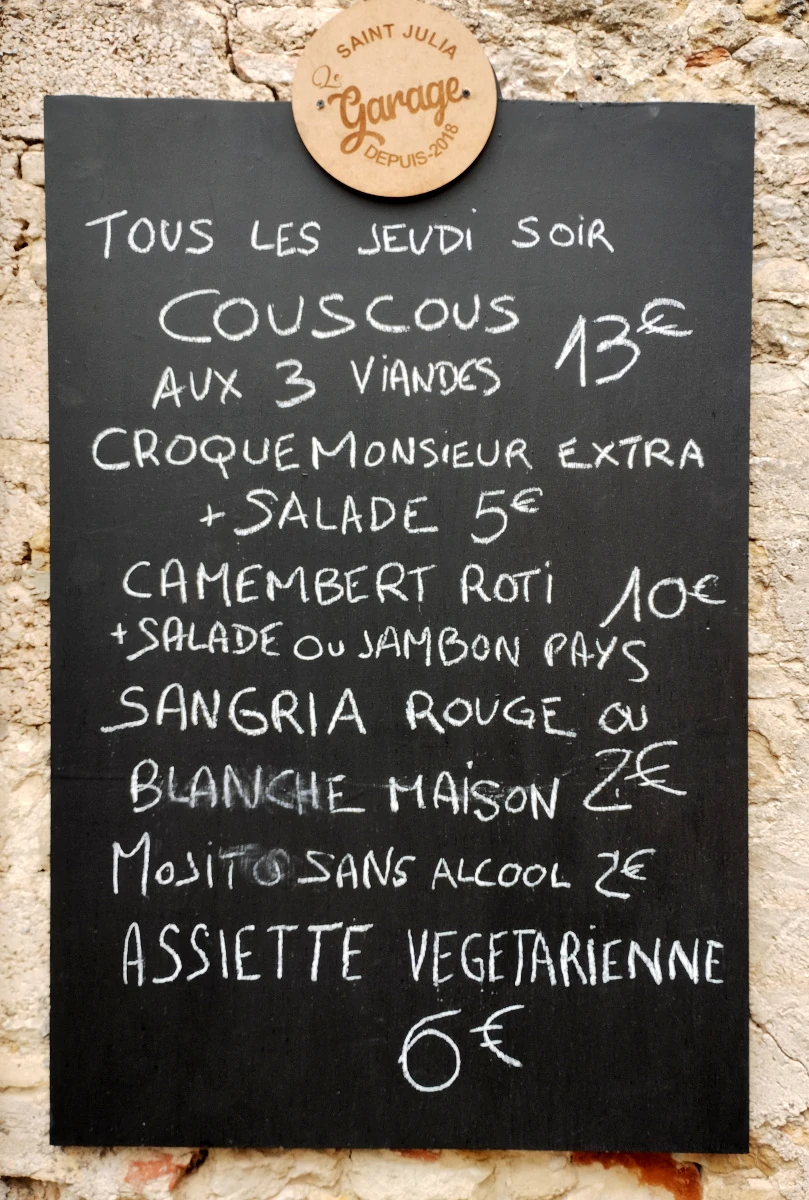 SAINT JULIA
Le
Garage
DEPUIS-2018
TOUS LES JEUDI SOIR
COUSCOUS
AUX 3 VIANDES 13€
CROQUEMONSIEUR EXTRA
+SALADE 5€
CAMEMBERT ROTI 10€
+SALADE OU JAMBON PAYS
SANGRIA ROUGE OU
BLANCHE MAISON 2€
MOJITO SANS ALCOOL 2€
ASSIETTE VEGETARIENNE
6€